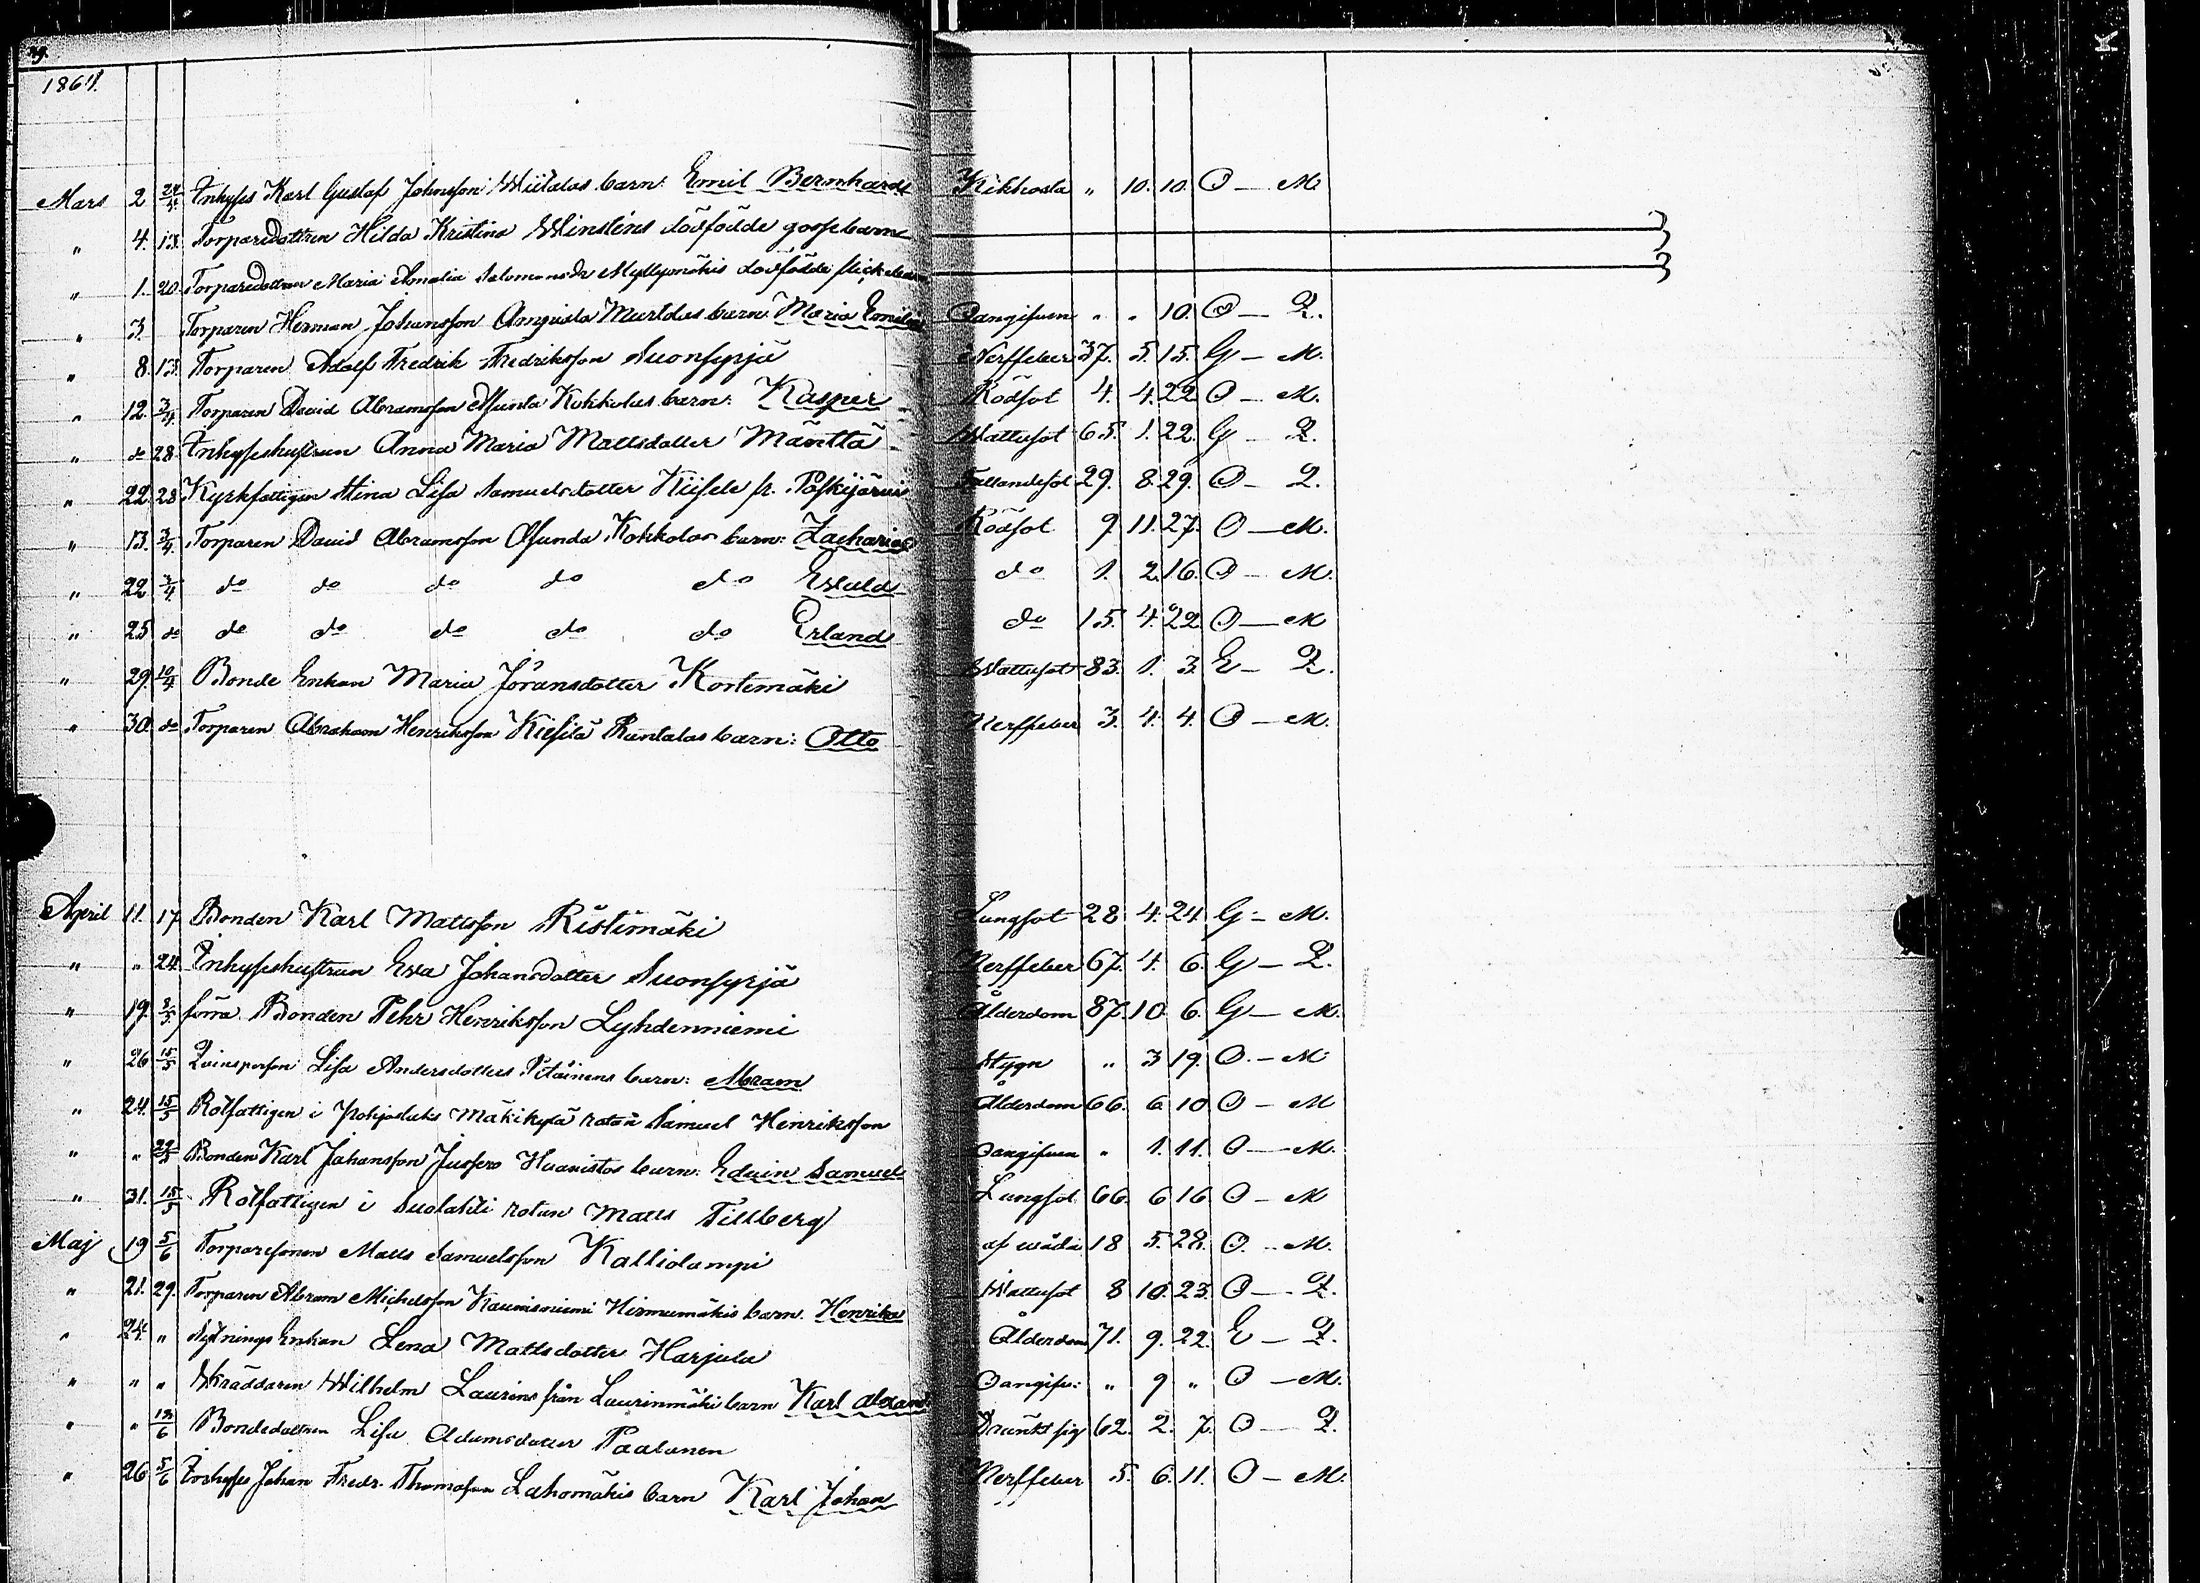 1864.
Mars 2 24/4 Inhyses Karl Gustaf Johnsson Wiitalas barn: Emil Bernhard Kikhosta " 10. 10. O — M.
" 4. 13. Torparedottren Hilda Kristina Winsténs dödfödde gossebarn
" 1. 20. Torparedottren Maria Amalia Salomonsdr Myllymäkis dödfödde flickebarn
" 3. Torparen Herman Johansson Murtolas barn: Maria Emilia Oangifven " " 10. O — Q.
" 8. 13. Torparen Adolf Fredrik Fredriksson Suonsyrjä Nerffeber 37. 5. 15. G — M.
" 12. 3/4 Torparen David Abramsson Asunta Kokkolas barn: Kasper Rödsot 4. 4. 22. O — M.
" do 28. Inhyseshustrun Anna Maria Mattsdotter Mänttä Wattusot 65. 1. 22. G — Q.
" 22. 28. Kyrkfattigen Stina Lisa Samuelsdotter Kiisele fr. Poskijärvi Fallandesot 29. 8. 29. O — Q.
" 13. 3/4 Torparen David Abramsson Asunda Kokkolas barn: Zacharias Rödsot 9. 11. 27. O — M.
" 22 3/4 do do do do do Evald do 1. 2. 16. O — M.
" 25 do do do do do do Erland do 15. 4. 22. O — M
" 29. 10/4 Bonde Enkan Maria Göransdotter Kortemäki Wattusot 83. 1. 3. E — Q.
" 30. do Torparen Abraham Henriksson Kiesilä Rantalas barn: Otto Nerffeber 3. 4. 4. O — M.
April 11. 17 Bonden Karl Mattsson Ristimäki Lungsot 28. 4. 24. G — M.
" " 24. Inhyseshustrun Eva Johansdotter Suonsyrjä Nerffeber 67. 4. 6. G — Q.
" 19. 8/5 förra Bonden Pehr Henriksson Lyhdenniemi Ålderdom 87. 10. 6. G — M.
" 26 15/5 Qvinsperson Lisa Andersdotters Pitäinens barn: Abram Stygn " 3 19. O — M
" 24. 15/5 Rotfattigen i Pohjaslaks Mäkikylä rotan Samuel Henriksson Ålderdom 66. 6. 10. O — M
" " 22/5 Bonden Karl Johansson Jussero Huanistos barn: Edvin Samuel Oangifven " 1. 11. O — M.
" 31. 15/5 Rotfattigen i Suolahti rotan Matts Tillberg Lungsot 66. 6. 16 O — M
Maj 19 5/6 Torparesonen Matts Samuelsson Kalliolampi af våda 18 5. 28. O. — M.
" 21. 29. Torparen Abram Michelsson Kaunisniemi Hirmumäkis barn: Henrika Wattusot 8 10. 23. O — Q.
" 24. " Sytnings Enkan Lena Mattsdotter Harjula Ålderdom 71. 9. 22. E — Q.
" " " Skräddaren Wilhelm Laurins från Laurinmäki barn Karl Alexand. Oangifv: " 9 " O — M.
" " 12/6 Bondedottren Lisa Adamsdotter Paalanen Dränkt sig 62. 2. 7. O — Q.
" 26 5/6 Inhyses Johan Fredr. Thomasson Lahomäkis barn Karl Johan Nerffeber 5. 6. 11. O — M.